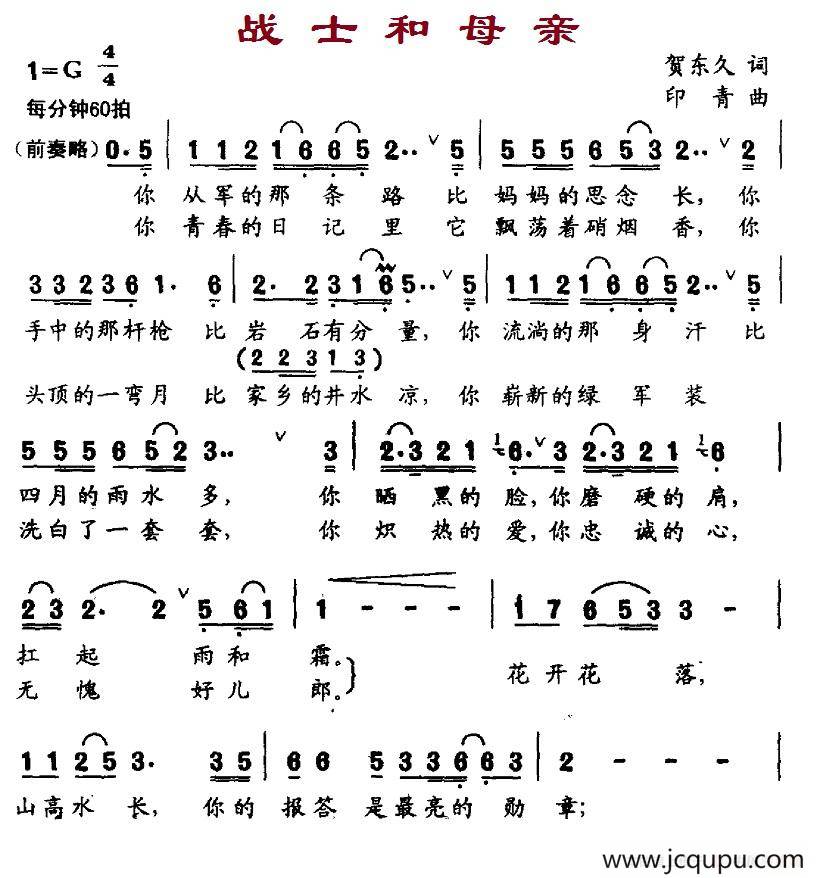 战士和母亲
1=G 4/4
贺东久 词
每分钟60拍
印 青 曲
(前奏略) 0. 5 | 1 1 2 1 6 6 5 2.. ∨ 5 | 5 5 5 6 5 3 2.. ∨ 2 |
你 从军的那 条 路 比 妈妈的思念 长, 你
你 青春的日 记 里 它 飘荡着硝烟 香, 你
3 3 2 3 6 1. 6 | 2. 2 3 1 6 5.. ∨ 5 | 1 1 2 1 6 6 5 2.. ∨ 5 |
手中的那杆枪 比 岩 石有分 量, 你 流淌的那 身 汗 比
(2 2 3 1 3)
头顶的一弯月 比 家乡的井水 凉, 你 崭新的绿 军 装
5 5 5 6 5 2 3.. ∨ 3 | 2. 3 2 1 1 6. ∨ 3 2. 3 2 1 1 6 |
四月的雨水 多, 你 晒 黑的 脸, 你磨 硬的 肩,
洗白了一套 套, 你 炽 热的 爱, 你忠 诚的 心,
2 3 2. 2 ∨ 5 6 1 | 1 - - - | 1 7 6 5 3 3 - |
扛 起 雨和 霜。
无 愧 好儿 郎。} 花开花 落,
1 1 2 5 3. 3 5 | 6 6 5 3 3 6 6 3 | 2 - - - |
山高水 长, 你的 报答 是最亮的 勋 章;
www.jcqupu.com